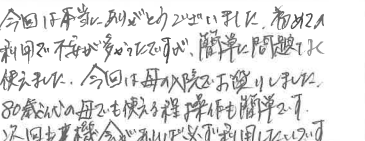 今回は本当にありがとうございました。初めての
利用で不安が多かったですが、簡単に問題なく
使えました。今回は母の入院でお借りしました。
80歳代の母でも使える程操作も簡単です。
次回も又機会があれば必ず利用したいです